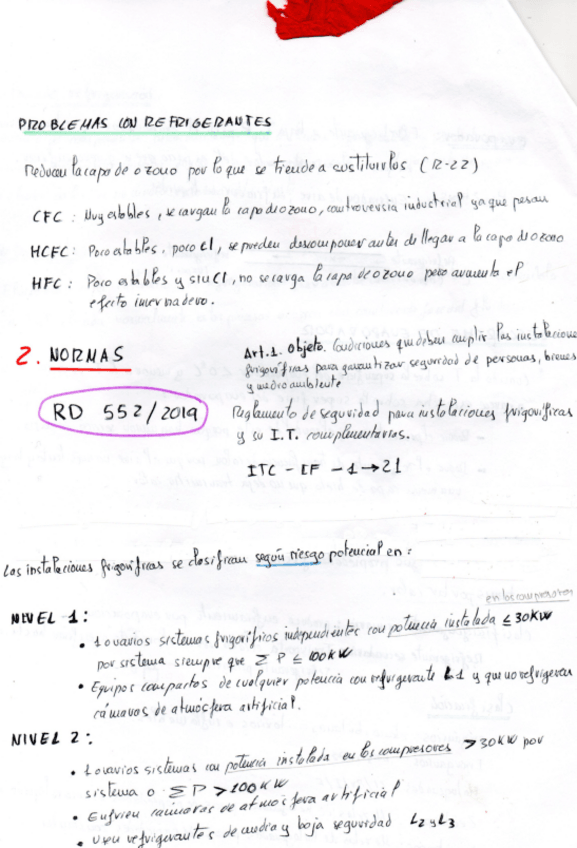 PROBLEMAS CON REFRIGERANTES
Reducen la capa de ozono por lo que se tiende a sustituirlos (R-22)
CFC : Muy estables, se cargan la capa de ozono, controversia industrial ya que pesan
HCFC : Poco estables, poco Cl, se pueden descomponer antes de llegar a la capa de ozono
HFC : Poco estables y sin Cl, no se carga la capa de ozono pero aumenta el
efecto invernadero.
2. NORMAS
Art.1. Objeto. Condiciones que deben cumplir las instalaciones
frigoríficas para garantizar seguridad de personas, bienes
y medio ambiente
RD 552/2019
Reglamento de seguridad para instalaciones frigoríficas
y su I.T. complementarios.
ITC - IF - 1 → 21
Las instalaciones frigoríficas se clasifican según riesgo potencial en :
en los compresores
NIVEL 1:
• 1 o varios sistemas frigoríficos independientes con potencia instalada ≤ 30KW
por sistema siempre que Σ P ≤ 100KW
• Equipos compactos de cualquier potencia con refrigerante L1 y que no refrigeren
cámaras de atmósfera artificial.
NIVEL 2:
• 1 o varios sistemas con potencia instalada en los compresores > 30KW por
sistema o Σ P > 100KW
• Enfrien cámaras de atmósfera artificial
• Usen refrigerantes de media y baja seguridad L2 y L3